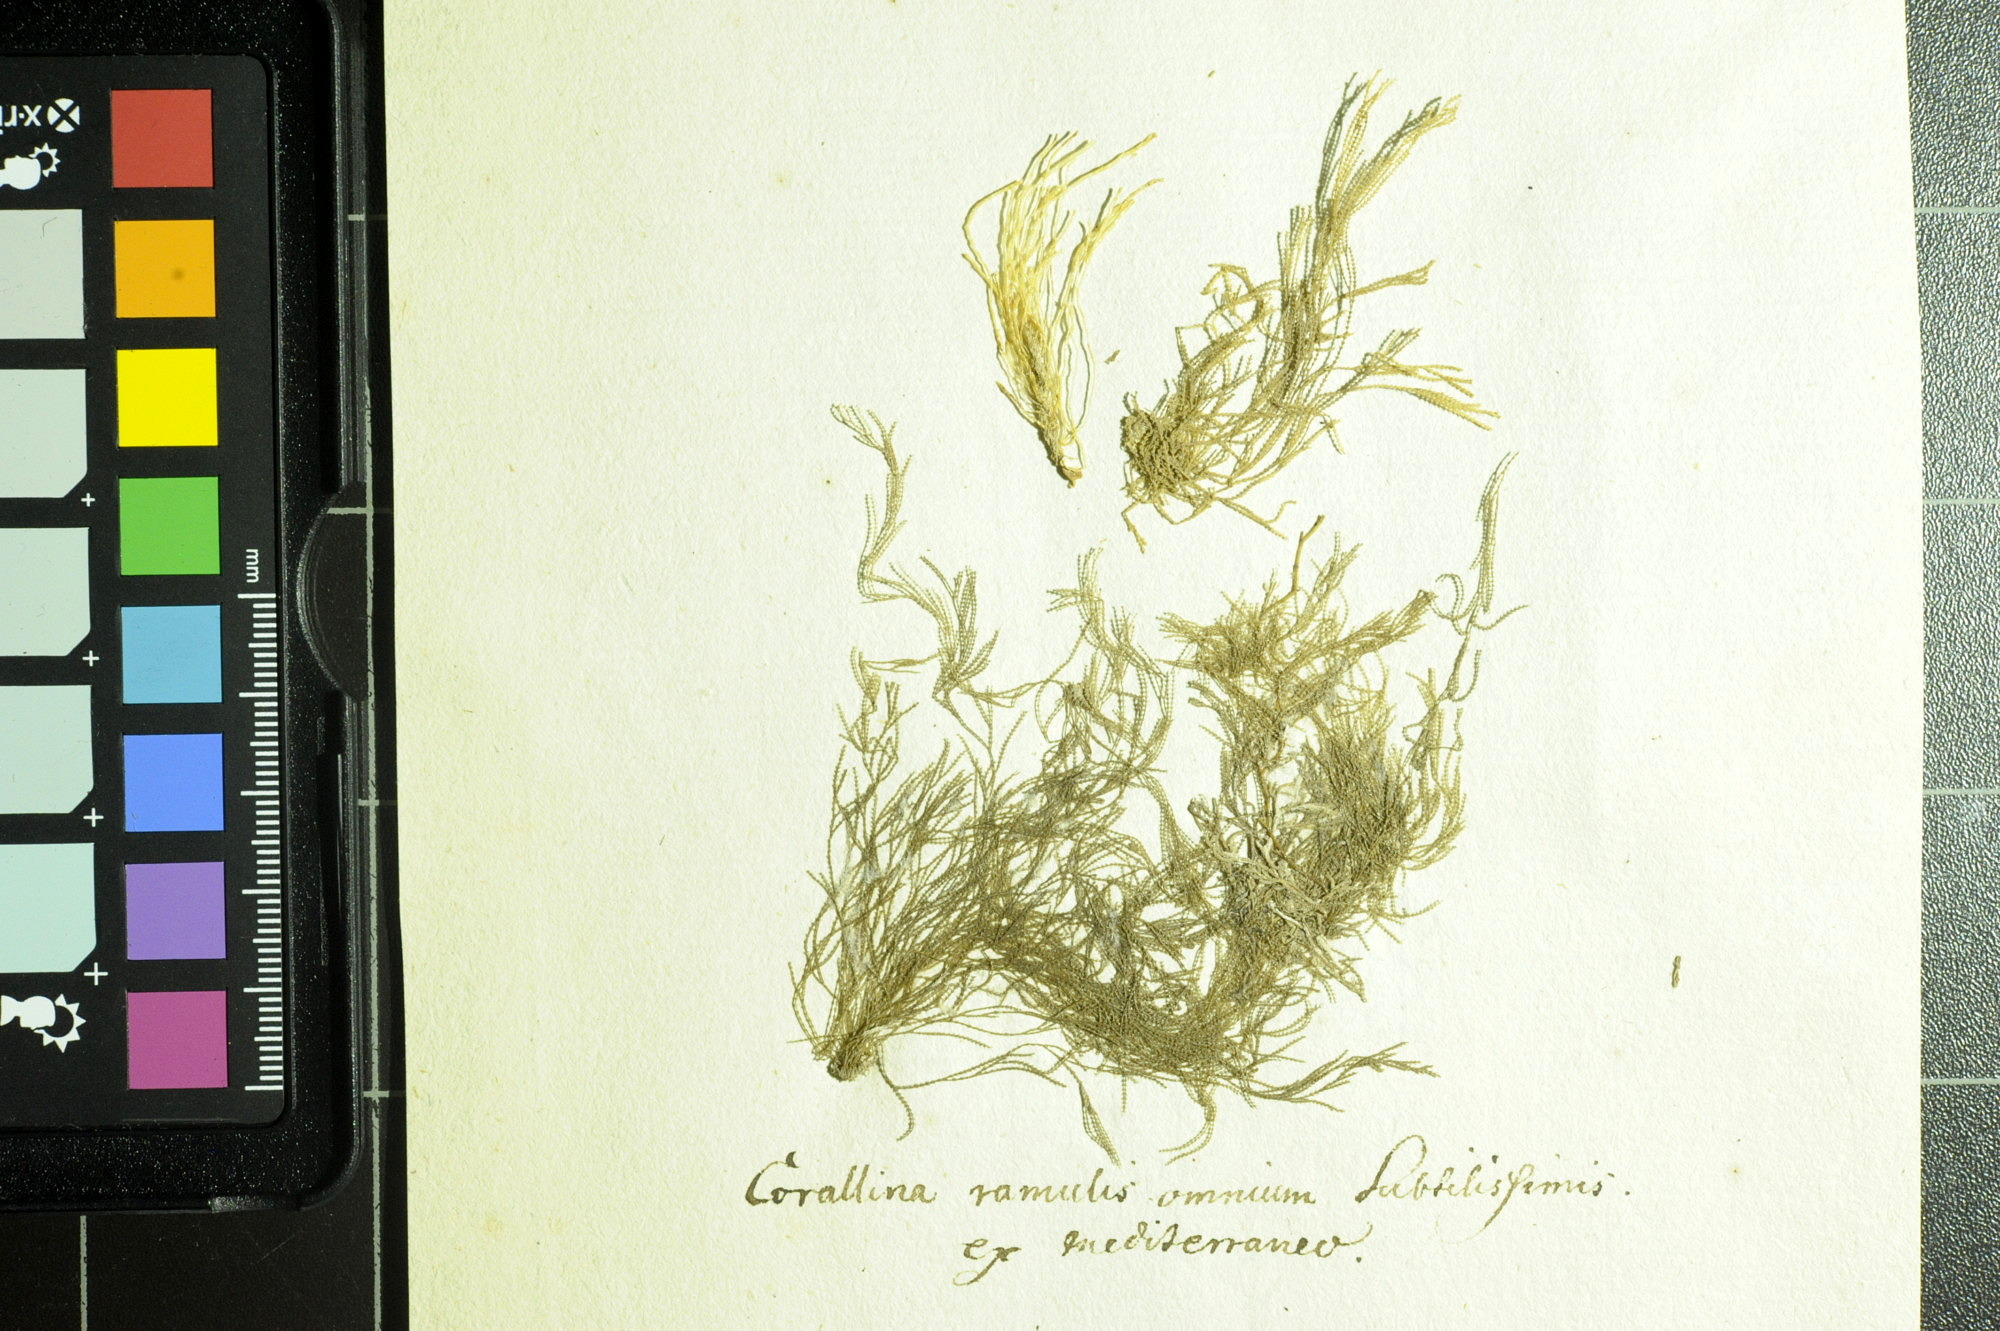 x-ri
mm
Corallina ramulis omnium Subtilissimis.
ex mediterraneo.